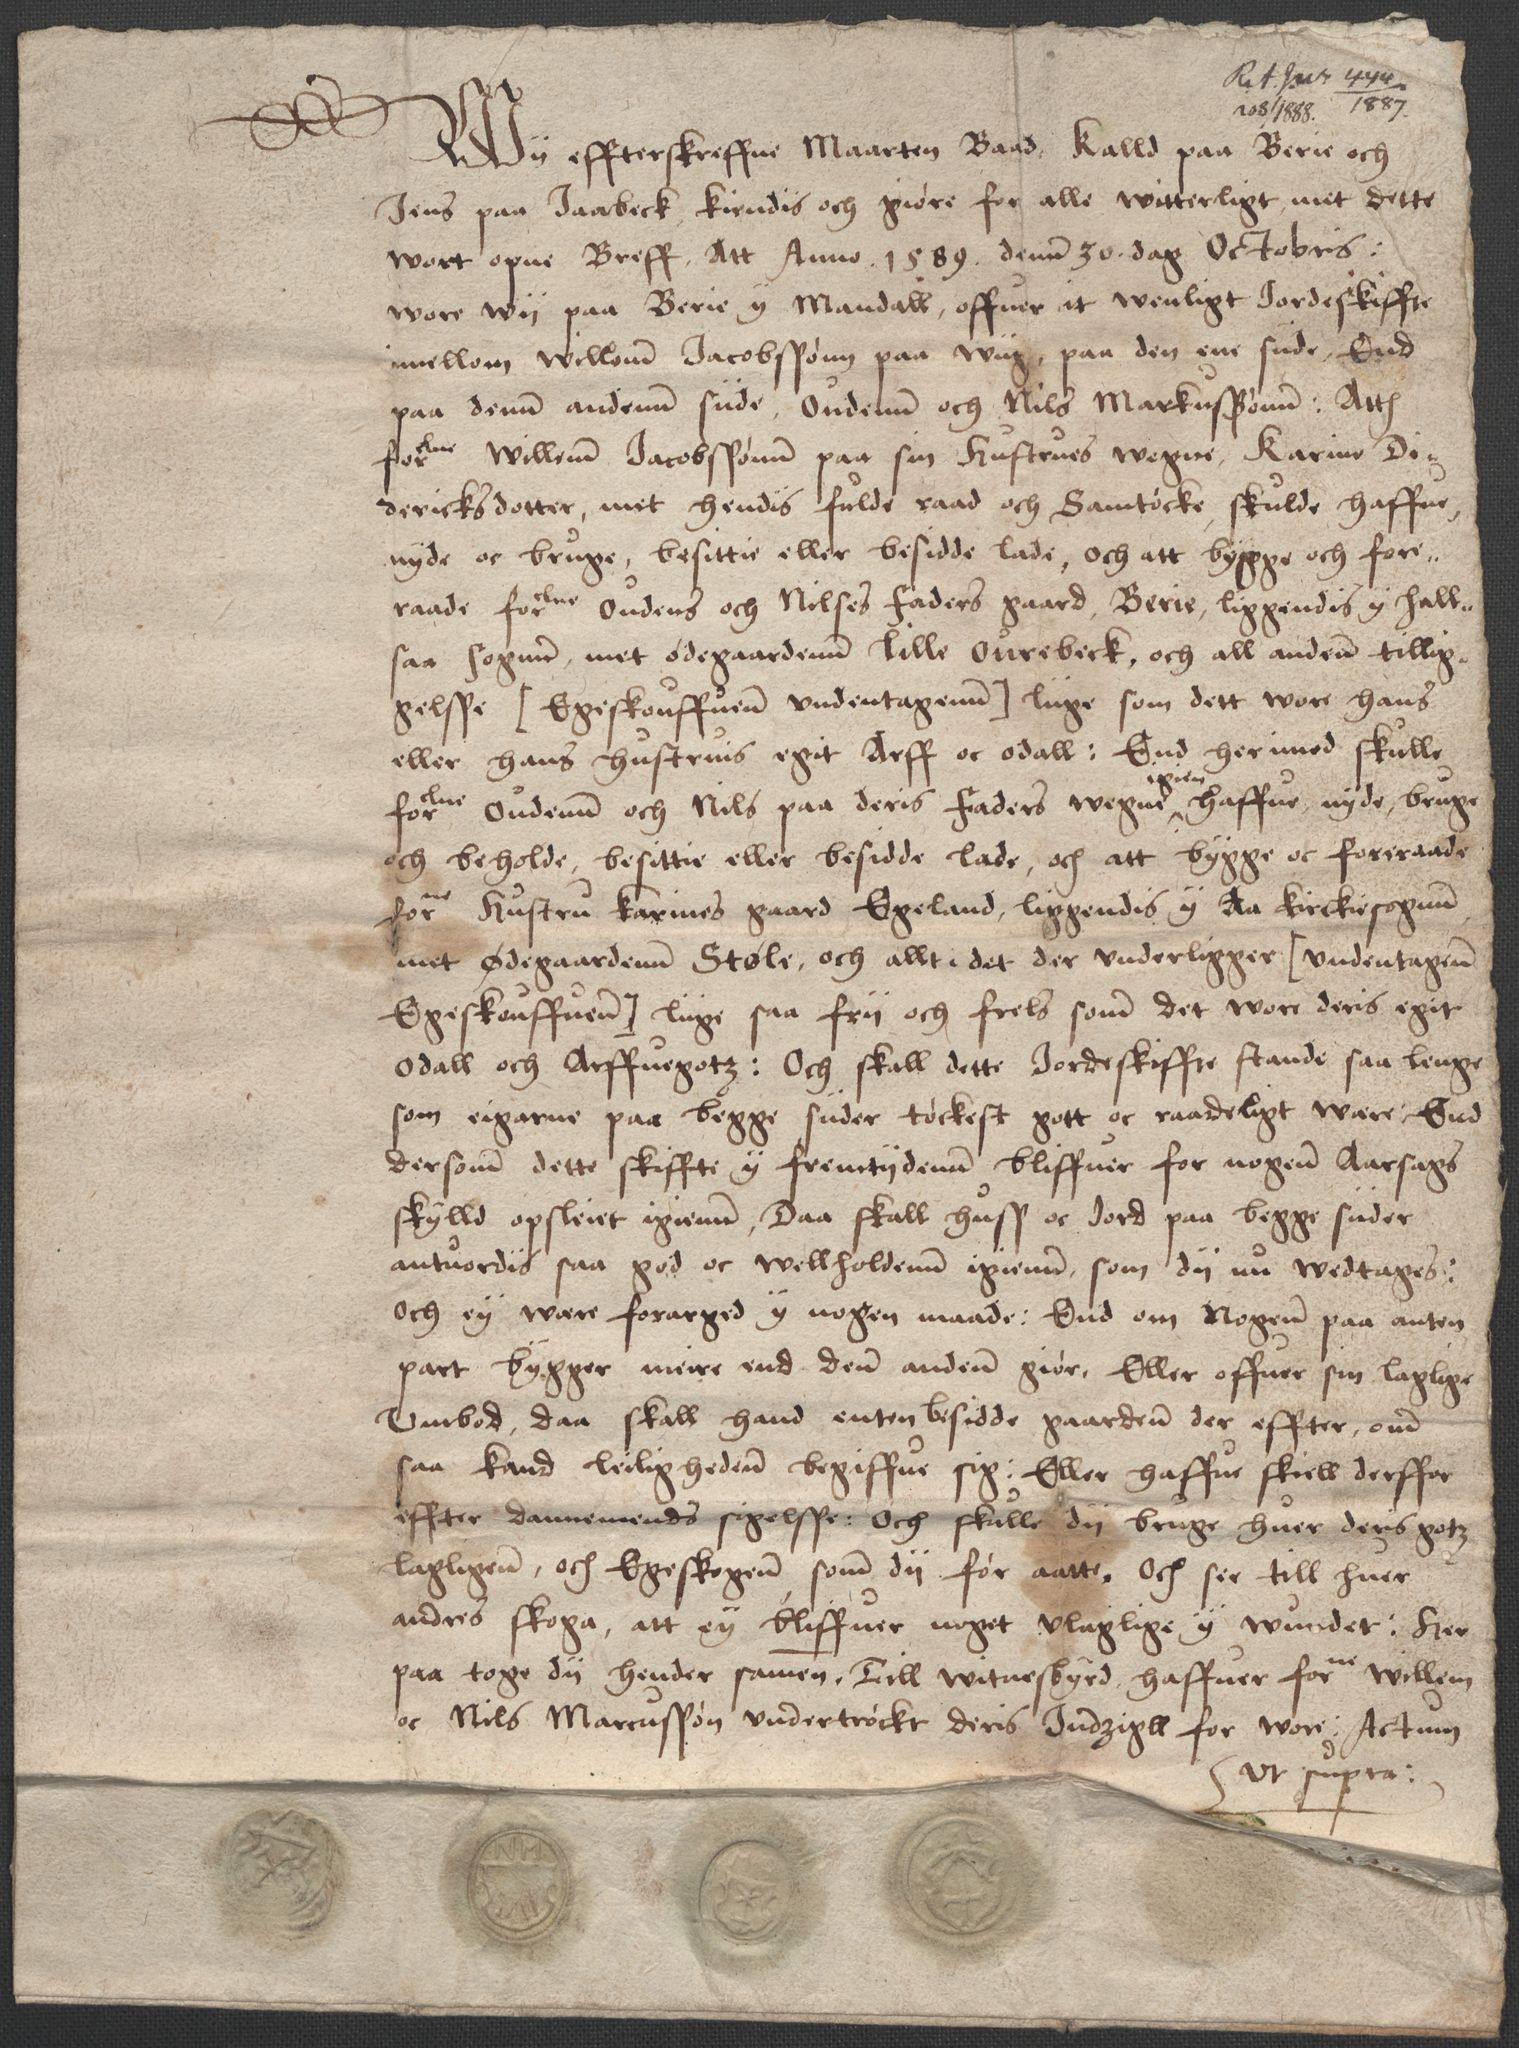 R.A. Jur 444/1887.
208/1888.
Wij effterskreffne Maarten Baad, Kalld paa Berie och
Jens paa Jaabeck, kiendis och giøre for alle witterligt met dette
wort opne Breff, Att Anno. 1589. denn 30. dag Octobris:
wore wij paa Berie ÿ Mandall, offuer it wenligt Jordeskiffte
imellom Willom Jacobssønn paa wiig, paa den ene siide, End
paa denn andenn siide, Oudenn och Nils Markussønn: Atth
for:clne Willem Jacobssønn paa sin Hustrues wegne, Karine Di-
dericksdotter, met hendis fulde raad och Samtøcke, skulde haffue,
nyde oc bruge, besittie eller besidde lade, och att bygge och fore-
raade for:clne Oudens och Nilses Faders gaard, Berie, liggendis ÿ Hall-
saa sognn, met ødegaardenn Lille Ourebeck, och all andenn tillig-
gelsse [Egeskouffuenn vndentagenn] liige som dett wore hans
eller hans hustruis egit Arff oc odall: End herimod skulle
for:clne Oudenn och Nils paa deris Faders wegne igien haffue, nyde, bruge
och beholde, besittie eller besidde lade, och att bygge oc foreraade
for:ne Hustru Karines gaard Egeland, liggendis ÿ Aa kirckiesognn,
met Ødegaardenn Støle, och allt det der vnderligger [vndentagenn
Egeskouffuenn] liige saa frii och frels som det wore deris egit
Odall och Arffuegotz: Och skall dette Jordeskiffte stande saa lenge
som eigarne paa begge siider tøckest gott oc raadeligt were: End
dersom dette skiffte ÿ fremtijdenn bliffuer for nogenn Aarsags
skylld opsleiet igienn, Daa skall huss oc Jord paa begge siider
antuordis saa god oc wellholdenn igienn, som dij nu wedtages:
Och eÿ were forarged ÿ nogen maade: End om Nogenn paa anten
part bygger meire end denn andenn giør, Eller offuer sin laglige
Umbod, daa skall hand enten besidde gaardenn der effter, om
saa kand leilighedenn begiffue sig: Eller haffue skiell derffor
effter dannemends sigelsse: Och skulle dij bruge huer deris gotz
lagligenn, och Egeskogenn som dij før aatte. Och see till huer
andres skoga, att eÿ bliffuer noget vlaglige ÿ wundet: Her
paa toge dij hender samen. Till witnesbyrd haffuer for:ne Willem
oc Nils Marcussøn vndertrøckt deris Indzigll for wore: Actum
vt supra:
NM